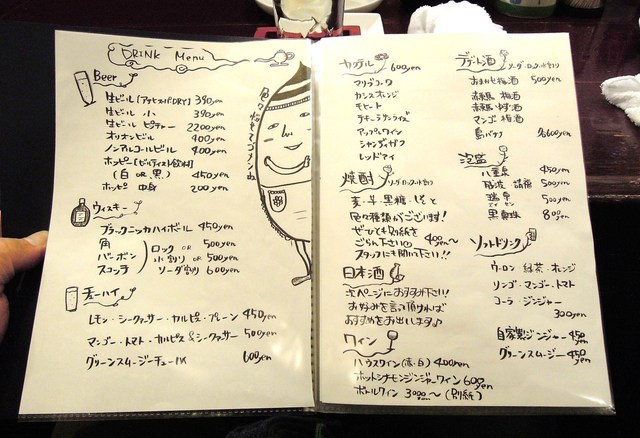 DRINK Menu
Beer
生ビール [アサヒスーパーDRY] 390yen
生ビール 小 390yen
生ビール ピッチャー 2200yen
オリオンビール 400yen
ノンアルコールビール 400yen
ホッピー [ビールテイスト飲料]
(白 OR 黒) 450yen
ホッピー 中身 200yen
ウィスキー
ブラックニッカハイボール 450yen
角 ロック OR 500yen
バーボン 水割り OR 500yen
スコッチ ソーダ割り 600yen
チューハイ
レモン・シークヮーサー・カルピス・プレーン 450yen
マンゴー・トマト・カルピス&シークヮーサー 500yen
グリーンスムージーチューハイ 600yen
カクテル 600yen
マリブコーク
カシスオレンジ
モヒート
テキーラサンライズ
アップルワイン
シャンディガフ
レッドアイ
焼酎 ソーダ・ロック・水割り
麦・芋・黒糖・しそと
色々種類がございます!
ぜひとも別紙を
ごらん下さい 400yen〜
スタッフにも聞いて下さい!!
日本酒
次ページにおすすめ下さい!
お好みを言って頂ければ
おすすめをお出しします♪
ワイン
ハウスワイン (赤・白) 400yen
ホットシナモンジンジャーワイン 600yen
ボトルワイン 3000yen〜 (別紙)
デザート酒 ソーダ・ロック・水割り
おまかせ梅酒 500yen
梅酒
マンゴ梅酒
島バナナ 各600yen
泡盛
八重泉 450yen
500yen
瑞泉 500yen
黒真珠 800yen
ソフトドリンク
ウーロン 緑茶・オレンジ
リンゴ・マンゴー・トマト
コーラ・ジンジャー
300yen
自家製ジンジャー 450yen
グリーンスムージー 450yen